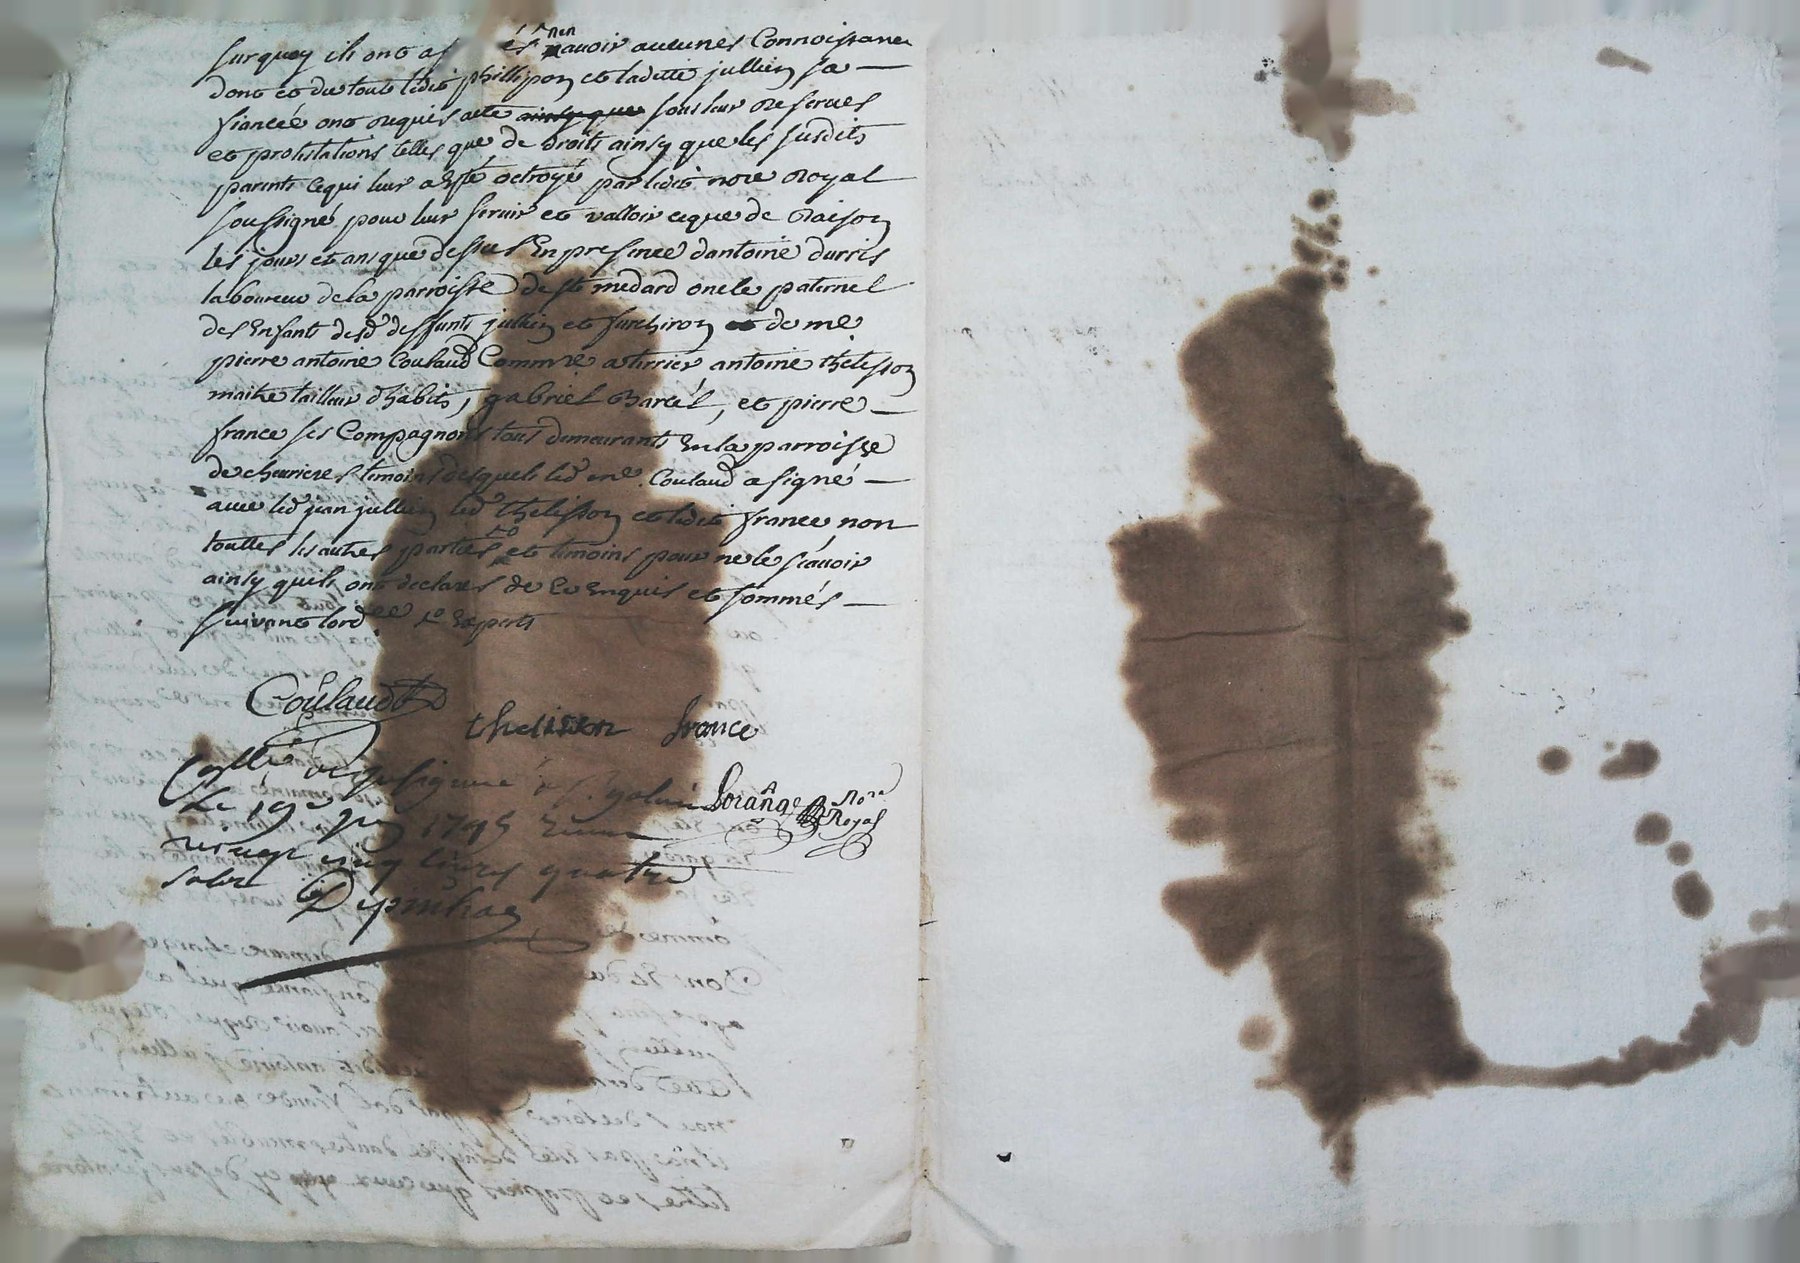 surquoy ils ont as és n'en auoir aucunes Connoissance
dont et du tout ledit phillipon et laditte jullien sa
fiancée ont requis acte sous leur reserues
et protestations telles que de droits ainsy que les susdits
parents ce qui leur a esté octroyé par ledit nore Royal
soussigné pour leur seruir et valloir ce que de Raison
les jours et an que dessus En presence d'antoine durris
laboureur de la parroisse de st medard oncle paternel
des Enfants desd deffunts jullien et furchiron de me
pierre antoine Coulaud Commre a terrier antoine thelisson
maitre tailleur d'habits, gabriel Marcel, et pierre
france ses Compagnons tous demeurants En la parroisse
de cheurieres temoins desquels led me Coulaud a signé
auec led jean jullien led thelisson et ledit france non
touttes les autres parties et temoins pour ne le scauoir
ainsy quils ont declarés de ce Enquis et sommés
suivant lord ce Experts
Coulaud
thelisson france
Lorange Nore
Royal
le 19e 1745
recu cinq livres quatre
sols